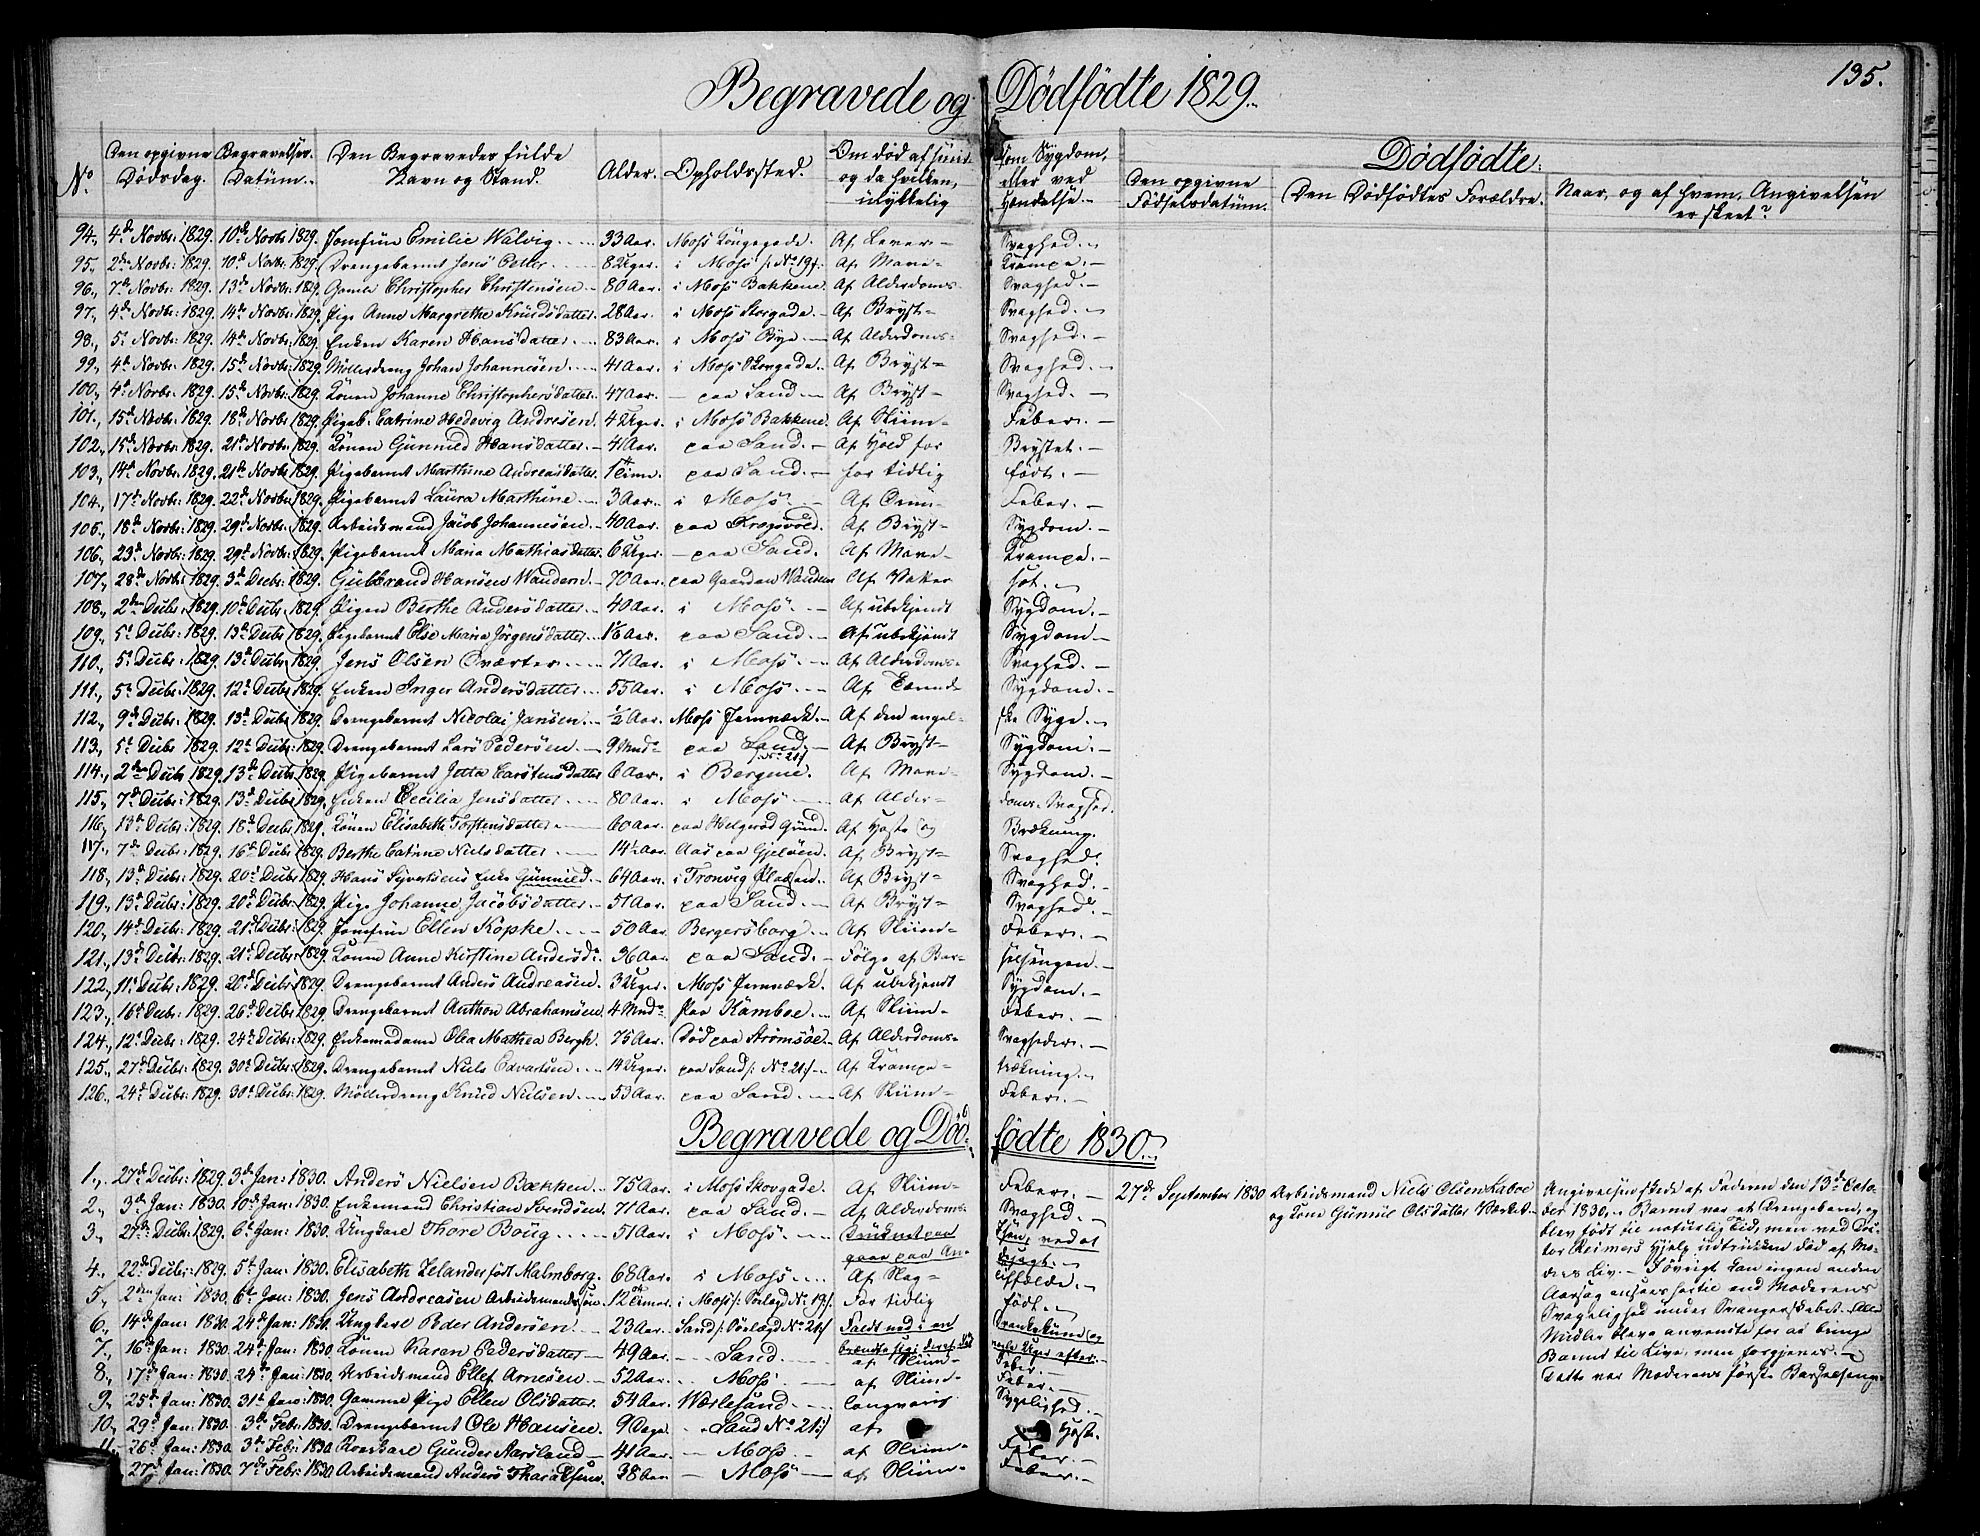 Begravede og Dødfødte 1829.
195.
No. Den opgivne Dødsdag. Begravelses-Datum. Den Begravedes fulde Navn og Stand. Alder. Opholdssted. Om død af hvilken Sygdom, eller ved ulykkelig Hændelse.
Dødfødte.
Den opgivne Fødselsdatum. Den Dødfødtes Forældre. Naar, og af hvem, Angivelsen er skeet?
94., 4de Novbr: 1829. 10de Novbr: 1829. Jomfrue Emilie Walvig 33 Aar. Moss Kongegade. Af Lever- Svaghed.
95., 2den Novbr: 1829. 10de Novbr: 1829. Drengebarnet Jens Petter 8 Uger. i Moss /: No 19 :/ Af Mave- Krampe.
96., 7de Novbr: 1829. 13de Novbr: 1829. Christopher Christensen 80 Aar. i Moss Bakkene. Af Alderdoms- Svaghed.
97., 4de Novbr: 1829. 14de Novbr: 1829. Pige Anne Margrethe Knudsdatter 28 Aar. i Moss Storgade. Af Bryst- Svaghed.
98., 5te Novbr: 1829. 14de Novbr: 1829. Enken Karen Hansdatter 83 Aar. i Moss Bye Af Alderdoms- Svaghed.
99., 4de Novbr: 1829. 15de Novbr: 1829. Møllerdreng Johan Johannesen 41 Aar. i Moss Skovgade. Af Bryst- Svaghed.
100., 4de Novbr: 1829. 15de Novbr: 1829. Konen Johanne Christophersdatter 47 Aar. paa Sand. Af Bryst- Svaghed.
101., 15de Novbr: 1829. 18de Novbr: 1829. Pigeb: Catrine Hedevig Andresen. 4 Uger. i Moss Bakkene. Af Sliim- Feber.
102., 15de Novbr: 1829. 21de Novbr: 1829. Konen Gunnild Hansdatter 41 Aar. paa Sand. Af Hold for Brystet.
103., 14de Novbr: 1829. 21de Novbr: 1829. Pigebarnet Marthine Andreasdatter. 1 Time. paa Sand. for tidlig født.
104., 17de Novbr: 1829. 22de Novbr: 1829. Pigebarnet Laura Marthine 3 Aar. i Moss Af Feber.
105., 18de Novbr: 1829. 29de Novbr: 1829. Arbeidsmand Jacob Johannesen. 40 Aar. paa Krogsvold. Af Bryst- Sygdom.
106., 23de Novbr: 1829. 29de Novbr: 1829. Pigebarnet Maria Mathiasdatter 6 Uger. paa Sand. Af Mave- Krampe.
107., 28de Novbr: 1829. 3de Decbr: 1829. Gulbrand Hansen Wanden. 70 Aar. paa Gaarden Wanden Af Vatter sot.
108., 2den Decbr: 1829. 10de Decbr: 1829. Pigen Berthe Andersdatter 40 Aar. i Moss. Af ubekjendt Sygdom.
109., 5te Decbr: 1829. 13de Decbr: 1829. Pigebarnet Else Maria Jörgensdatter. 1/6 Aar. paa Sand. Af ubekjendt Sygdom.
110., 5te Decbr: 1829. 13de Decbr: 1829. Jens Olsen 71 Aar. i Moss. Af Alderdoms- Svaghed.
111., 5te Decbr: 1829. 12te Decbr: 1829. Enken Inger Andersdatter 55 Aar. i Moss. Af Sygdom.
112., 9de Decbr: 1829. 13de Decbr: 1829. Drengebarnet Nicolai Jansen. 1/2 Aar. Moss Jernværk. Af den engelske Syge.
113., 5te Decbr: 1829. 12te Decbr: 1829. Drengebarnet Lars Pedersen 9 Mnd. paa Sand. Af Bryst- Sygdom.
114., 2den Decbr: 1829. 13de Decbr: 1829. Pigebarnet Jetta Carstensdatter 6 Aar. i Bergene. /: No 21 :/ Af Mave- Sygdom.
115., 7de Decbr: 1829. 13de Decbr: 1829. Enken Cecilia Jensdatter 80 Aar. i Moss Af Alderdoms- Svaghed.
116., 13de Decbr: 1829. 18de Decbr: 1829. Konen Elisabeth Torstensdatter 60 Aar. paa Helgerød Grund. Af Hoste og Brækning.
117., 7de Decbr: 1829. 16de Decbr: 1829. Berthe Catrine Nielsdatter 14½ Aar. Aas paa Gjeløen. Af Bryst- Svaghed.
118., 13de Decbr: 1829. 20de Decbr: 1829. Hans Syvertsens Enke Gunnild. 64 Aar. i Tronvig Pladsen. Af Bryst- Svaghed.
119., 13de Decbr: 1829. 20de Decbr: 1829. Pige Johanne Jacobsdatter 51 Aar. paa Sand. Af Bryst- Svaghed.
120., 14de Decbr: 1829. 21de Decbr: 1829. Jomfrue Ellen Kopke 50 Aar. Bergersborg Af Sliim- Feber.
121., 13de Decbr: 1829. 21de Decbr: 1829. Konen Anne Kirstine Andersd: 36 Aar. paa Sand. Følge af Barselsengen.
122., 11te Decbr: 1829. 20de Decbr: 1829. Drengebarnet Anders Andreasen. 3 Uger. Moss Jernværk. Af ubekjendt Sygdom.
123., 16de Decbr: 1829. 26de Decbr: 1829. Drengebarnet Anthon Abrahamsen 4 Mnd. Paa Kamboe. Af Sliim- Feber.
124., 12te Decbr: 1829. 24de Decbr: 1829. Enkemadame Olea Mathea Bergh. 75 Aar. Død paa Strømsøe. Af Alderdoms- Svagheder.
125., 27de Decbr: 1829. 30de Decbr: 1829. Drengebarnet Niels Edvartsen 14 Uger. paa Sand /: No 21 :/ Af Krampetrækning.
126., 24de Decbr: 1829. 30te Decbr: 1829. Møllerdreng Knud Nielsen 53 Aar. paa Sand. Af Sliim- Feber.
Begravede og Dødfødte 1830.
1., 27de Decbr: 1829. 3de Jan: 1830. Anders Nielsen Bakken 75 Aar. i Moss Skovgade. Af Sliim- Feber.
2., 3de Jan: 1830. 10de Jan: 1830. Enkemand Christian Svendsen 71 Aar. paa Sand. Af Alderdoms- Svaghed.
3., 27de Decbr: 1829. 6te Jan: 1830. Ungkarl Thore Boug 51 Aar. i Moss. Druknet paa Søen, ved at gaae paa
4., 22de Decbr: 1829. 5te Jan: 1830. Elisabeth Zelander født Malmborg. 68 Aar. i Moss. Af Slagtilfælde.
5., 2den Jan: 1830. 6te Jan: 1830. Jens Andreasen Arbeidsmandssøn. 12 Timer. i Moss /: Forlagd No 19 :/ For tidlig født.
6., 14de Jan: 1830. 24de Jan: 1830. Ungkarl Peder Andersen 23 Aar. Sand /: Forlagd No 21 :/ Faldt ned i en og brændte sig; døde Uger efter.
7., 16de Jan: 1830. 24de Jan: 1830. Konen Karen Pedersdatter 49 Aar. Sand. af Sliim- Feber.
8., 17de Jan: 1830. 24de Jan: 1830. Arbeidsmand Ellef Arnesen. 52 Aar. Moss. af Sliim- Feber.
9., 25de Jan: 1830. 31te Jan: 1830. Gamme Pige Ellen Olsdatter. 54 Aar. Værlesand. langvarig Sygelighed.
10., 29de Jan: 1830. 3de Febr: 1830. Drengebarnet Ole Hansen. 9 Dage. Sand No 21 :/ af Host.
11. 26de Jan: 1830. 3de Febr: 1830. Roerkarl Gunder Aarsland 41 Aar. Moss af Sliim- Feber.
27de Jan: 1830. 7de Febr: 1830. Arbeidsmand Anders Tharaldsen. 38 Aar. Moss af Sliim- Feber.
27de September 1830 Arbeidsmand Niels Olsen Laboe
og Kone Gunnil Olsdatter Værket.
Angivelsen skede af Faderen den 13de October
1830. Barnet var et Drengebarn, og
blev født til naturlig Tid, men ved Doctor
Reimers Hjelp udtrukken død af Moders
Liv. Iøvrigt kan ingen anden
Aarsag ansees hertil end Moderens
Svagelighed under Svangerskabet. Alle
Midler bleve anvendte for at bringe
Barnet til Live, men forgjeves.
Dette var Moderens første Barselseng.